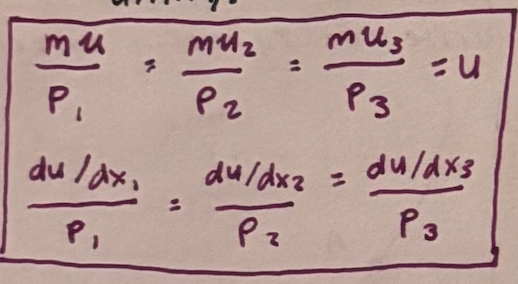 mu/P₁ = mu₂/P₂ = mu₃/P₃ = u
du/dx₁/P₁ = du/dx₂/P₂ = du/dx₃/P₃